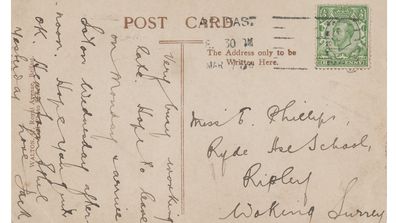 POST CARD
The Address only to be
Written Here.
30
MAR
Miss E. Phillips,
Ryde Hse School,
Ripley
Woking Surrey
Very busy working
late. Hope to leave
on Monday & arrive
Luton Wednesday after
noon. Hope you quite
OK.
yesterday Love Jack